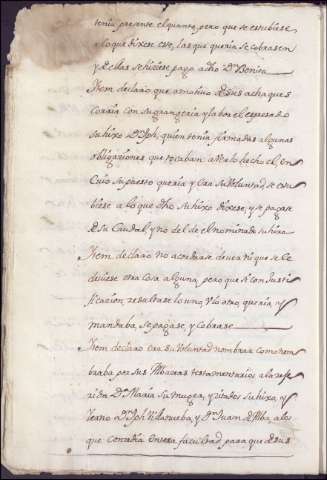 tenía presente el quanto, pero que se estubiese
a lo que dixese este, las que queria se cobrasen
y de ellas se hiciese pago a dho Dn Benito
Item declaró que amotivo de sus achaques
corria con su grangería y labor el expresado
su hixo Dn Jph, quien tenia formadas algunas
obligaziones que tocaban a verlo hecho el, en
Cuio supuesto queria y era su Voluntad se estu
biese a lo que dho su hixo dixese, y se pagase
de su Caudal y no del de el nominado su hixo
Item declaró no acordarse deuer ni que se le
deuiese otra cosa alguna, pero que si con Justi
ficazion, resultase lo uno, v lo otro, queria y
mandaba, se pagase, y Cobrase
Item declaró era su Voluntad nombrar como nom
braba por sus Albazeas testamentarios a la refe
rida Da Maria su muger, y citados su hixo, y
Yerno Dn Jph Villanueba, y Dn Juan de Alba, a los
que concedia entera facultad para que de sus